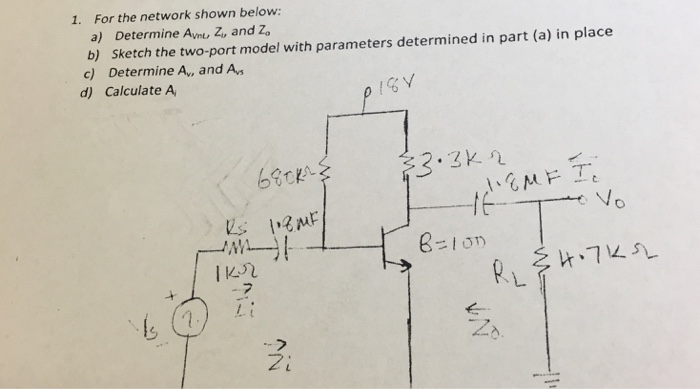 1. For the network shown below:
a) Determine AvNL, Zi, and Zo
b) Sketch the two-port model with parameters determined in part (a) in place
c) Determine Av, and Avs
d) Calculate Ai
18V
680KΩ
3.3KΩ
1.8MF
Io
Vo
Rs
1.8MF
B=100
1KΩ
RL
4.7KΩ
Ii
Vs
Zo
Zi